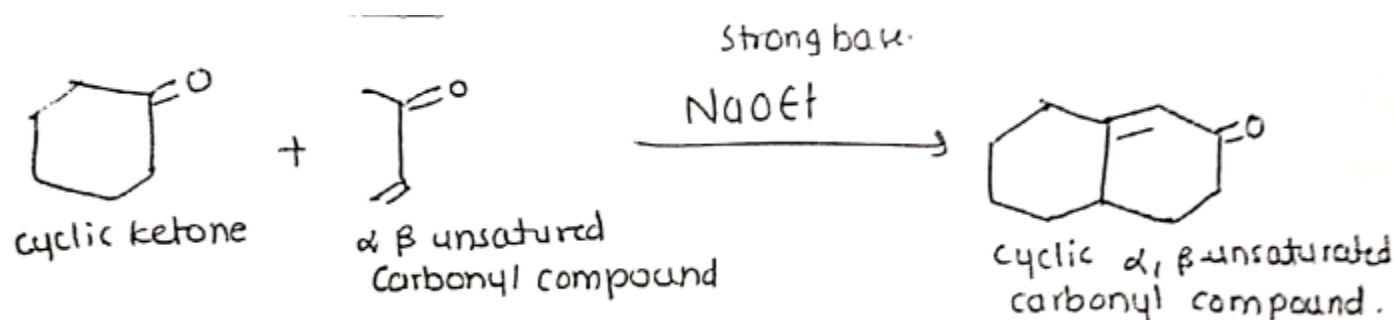 Strong base.
NaOEt
O
O
+
O
cyclic ketone
α β unsatured
Carbonyl compound
cyclic α, β unsaturated
carbonyl compound.